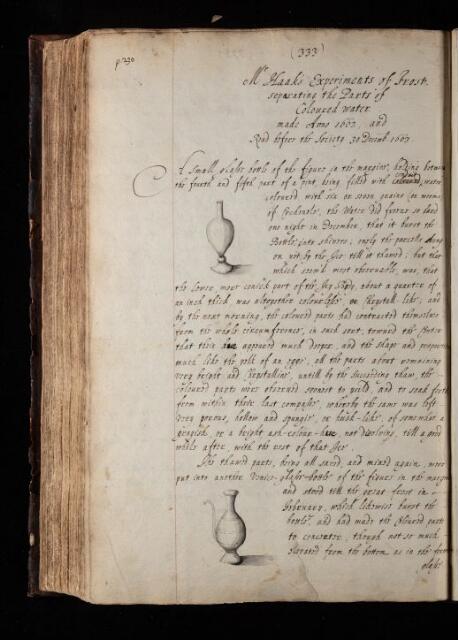 (333)
p. 230
Mr Haak's Experiments of Frost
separating the Parts of
Coloured water
made Anno 1662, and
Read before the Society 30 Decemb. 1663.
A small glasse bottle of the figure in the margine, holding between
the fourth and fifth part of a pint, being filled with water
coloured with six or seven grains
of Cochenele, the Water did freeze so hard
one night in December, that it burst the
Bottle into shivers; onely the parcells
on by the Ice till it thawed; but that
which seem'd most observable, was, that
the lower, most conick part of the Icy Body, about a quarter of
an inch thick was altogether colourlesse or Chrystall-like; and
by the next morning, the coloured parts had contracted themselves
from the whole circumference, in such sort, toward the
that their appeared much deeper, and the shape and proportion
much like the yolk of an egge, all the parts about remaining
very bright and Chrystalline, untill by the succeeding thaw, the
coloured parts were observed soonest to yield, and to soak forth
from within their last compasse, whereby the same was left
very porous, hollow and spungie, or husk-like, of somewhat a
grayish, or a bright ash-colour-, not dissolving, till a good
while after, with the rest of that Ice.
The thawed parts, being all saved, and mixed again, were
put into another Venice-glasse-bottle of the figure in the margine
and stood till the great frost in
February, which likewise burst the
bottle, and had made the Coloured parts
to concenter, though not so much
elevated from the bottom as in the
glasse